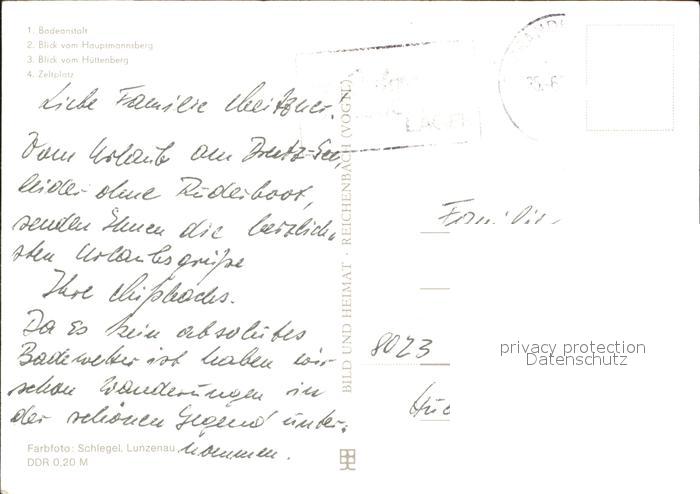 1. Badeanstalt
2. Blick vom Hauptmannsberg
3. Blick vom Hüttenberg
4. Zeltplatz
Liebe Familie
Vom Urlaub am
leider ohne Ruderboot,
senden Ihnen die herzlich-
sten Urlaubsgrüße
Ihre
Da es kein absolutes
Badewetter ist haben wir
schon Wanderungen in
der schönen Gegend unter-
nommen.
Farbfoto: Schlegel, Lunzenau
DDR 0,20 M
BILD UND HEIMAT · REICHENBACH (VOGTL)
8023
privacy protection
Datenschutz